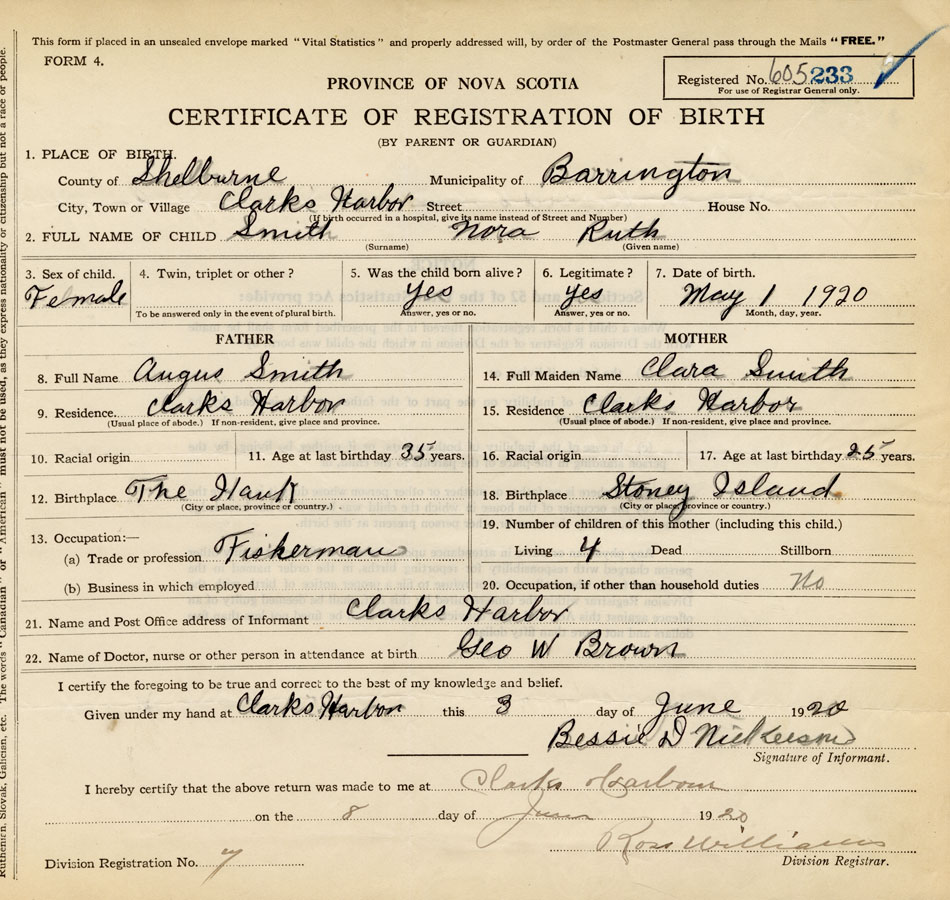 This form if placed in an unsealed envelope marked "Vital Statistics" and properly addressed will, by order of the Postmaster General pass through the Mails "FREE."
FORM 4.
Registered No. 605233
For use of Registrar General only.
PROVINCE OF NOVA SCOTIA
CERTIFICATE OF REGISTRATION OF BIRTH
(BY PARENT OR GUARDIAN)
1. PLACE OF BIRTH.
County of Shelburne Municipality of Barrington
City, Town or Village Clarks Harbor Street House No.
(If birth occurred in a hospital, give its name instead of Street and Number)
2. FULL NAME OF CHILD Smith Nora Ruth
(Surname) (Given name)
3. Sex of child. 4. Twin, triplet or other? 5. Was the child born alive? 6. Legitimate? 7. Date of birth.
Female Yes Yes May 1 1920
To be answered only in the event of plural birth. Answer, yes or no. Answer, yes or no. Month, day, year.
FATHER MOTHER
8. Full Name Angus Smith 14. Full Maiden Name Clara Smith
9. Residence. Clarks Harbor 15. Residence Clarks Harbor
(Usual place of abode.) If non-resident, give place and province. (Usual place of abode.) If non-resident, give place and province.
10. Racial origin 11. Age at last birthday 35 years. 16. Racial origin 17. Age at last birthday 25 years.
12. Birthplace The Hawk 18. Birthplace Stoney Island
(City or place, province or country.) (City or place, province or country.)
19. Number of children of this mother (including this child.)
13. Occupation:—
(a) Trade or profession Fisherman Living 4 Dead Stillborn
(b) Business in which employed 20. Occupation, if other than household duties No
21. Name and Post Office address of Informant Clarks Harbor
22. Name of Doctor, nurse or other person in attendance at birth Geo W Brown
I certify the foregoing to be true and correct to the best of my knowledge and belief.
Given under my hand at Clarks Harbor this 3 day of June 1920
Bessie D Nickerson
Signature of Informant.
I hereby certify that the above return was made to me at Clarks Harbour
on the 8 day of June 1920
Ross Williams
Division Registration No. 7 Division Registrar.
Ruthenian, Slovak, Galician, etc. The words "Canadian" or "American" must not be used, as they express nationality or citizenship but not a race or people.